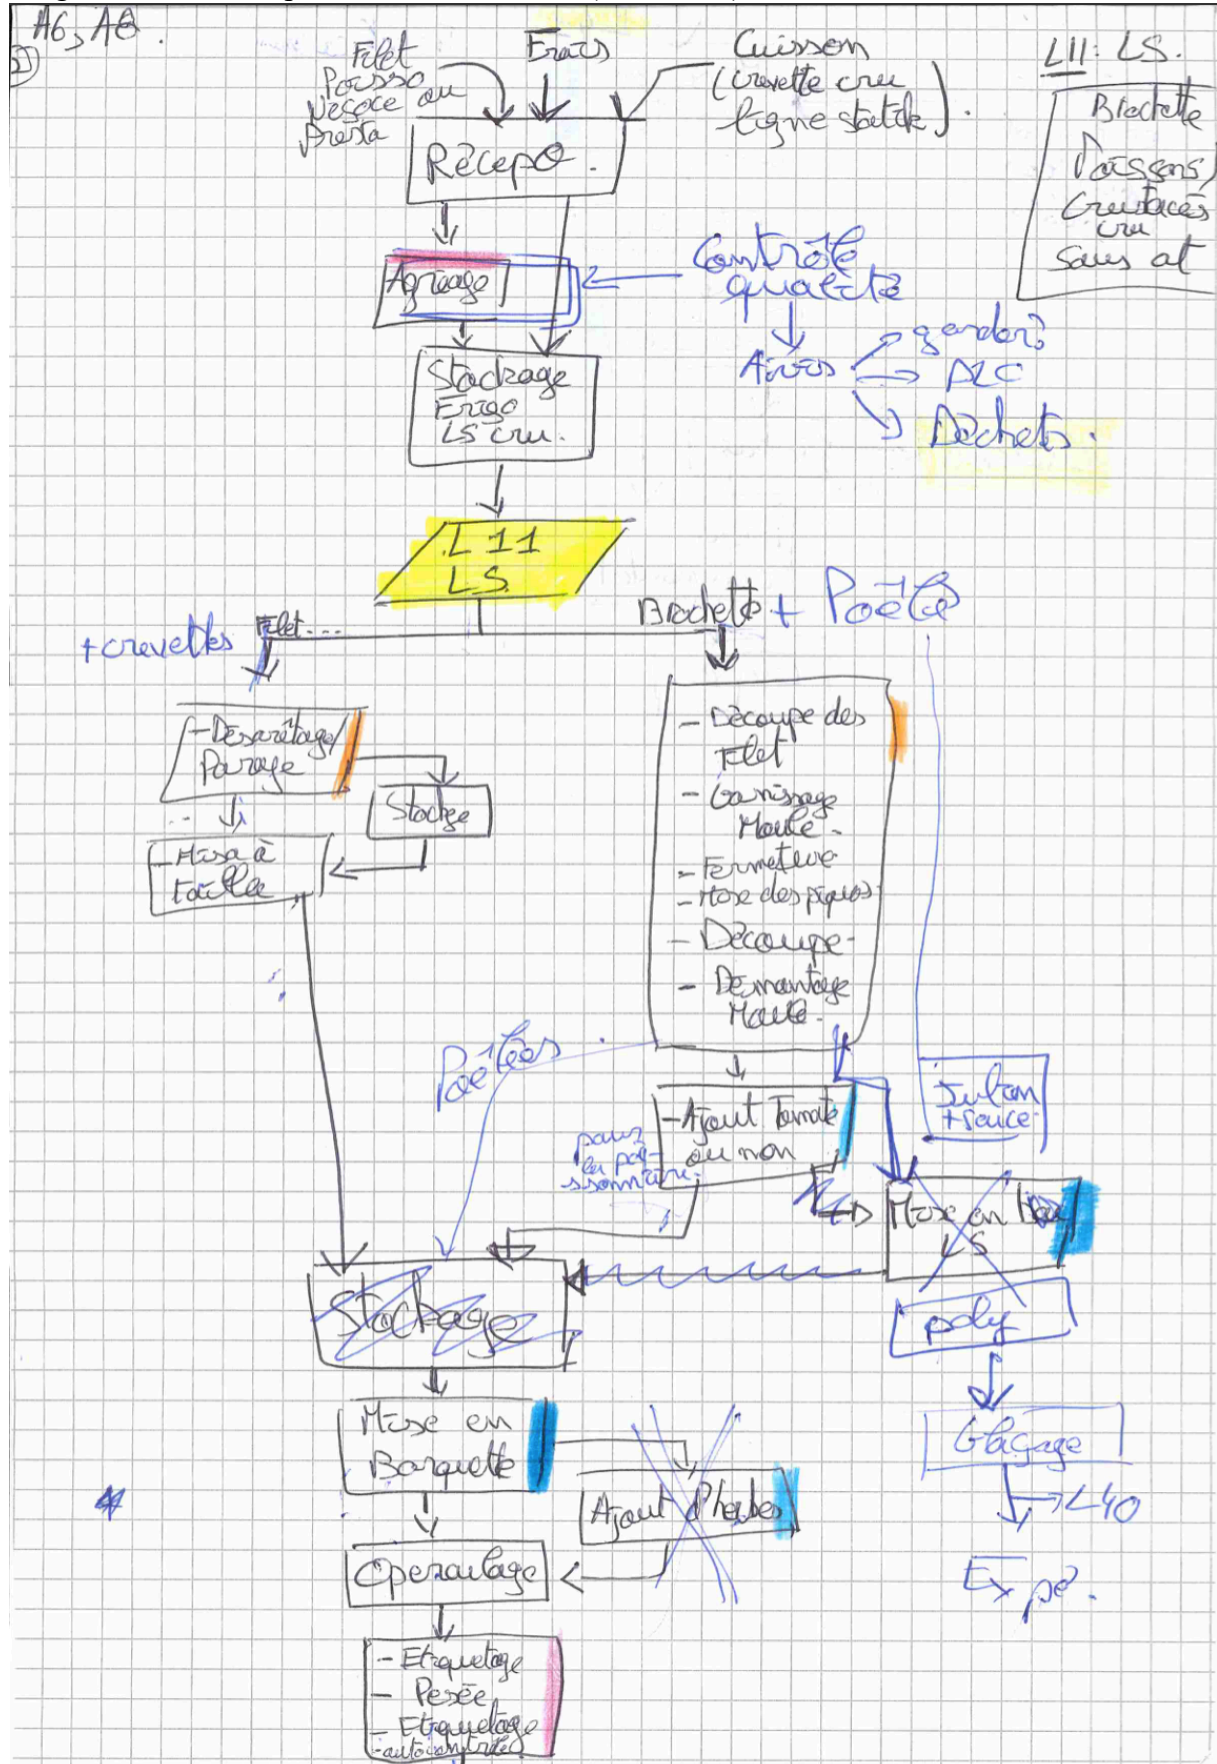 A6, A8.
Filet
Poisso
Négoce ou
presta
Frais
Cuisson
(crevette cru
ligne statik).
L11: LS.
Brochette
Poissons,
Crustacés
cru
sans at
Récepº.
Agréage
Contrôle
qualité
Avis
garder?
DLC
Déchets.
Stockage
Frigo
LS cru.
L 11
LS.
+ crevettes
Filet....
Brochette + Poêlé
- Desarêtage/
Parage
Stockge
- Mise à
taille
- Découpe des
Filet
- Garnissage
Moule.
- Fermeture
- Mise des piques
- Découpe.
- Démontage
Moule.
Poêlées
Julian
+ sauce
- Ajout Tomate
ou non
pour
la poi-
ssonnerie.
Mise en
LS
poly
Stockage
Glaçage
L40
Expé.
Mise en
Barquette
Ajout d'herbes
Operculage
- Etiquetage
- Pesée
- Etiquetage
- autocontrôle